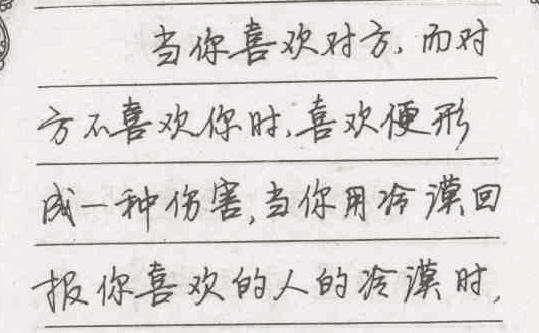 当你喜欢对方,而对
方不喜欢你时,喜欢便形
成一种伤害,当你用冷漠回
报你喜欢的人的冷漠时,